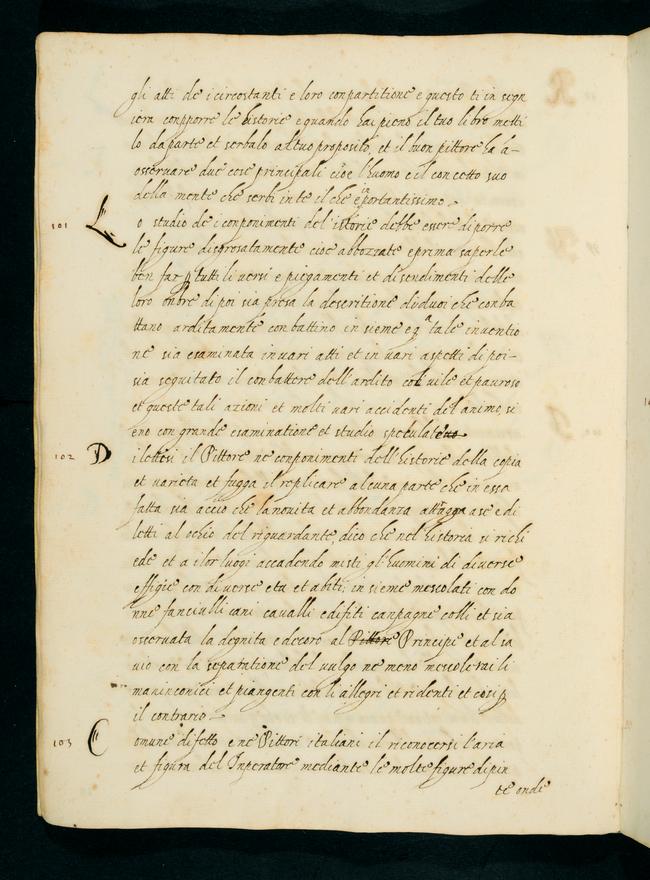 gli atti de i circostanti e loro conpartitione e questo ti in segn
iera conpporre le historie e quando hai pieno il tuo libro metti
lo da parte et serbalo al tuo proposito, et il buon pittore ha a-
osseruare due cose principali cioe l'huomo e il concetto suo
della mente che serbi in te il che e inportantissimo -
101 Lo studio de i conponimenti del'istorie debbe essere di porre
le figure disgrosatamente cioe abbozzate e prima saperle
ben far p tutti li versi e piegamenti et distendimenti delle
loro onbre di poi sia presa la descritione di duoi che conba
ttano arditamente conbattino in sieme e qa tale inuentio
ne sia esaminata in uari atti et in uari aspetti di poi-
sia seguitato il conbattere dell'ardito col uile et pauroso
et queste tali azioni et molti uari accidenti del animo, si
eno con grande esaminatione et studio speculate
102 Dilettesi il Pittore ne conponimenti dell'historie della copia
et varieta et fugga il replicare alcuna parte che in essa
fatta sia accio che la nouita et abbondanza attragga a se e di
letti al ochio del riguardante, dico che nel historia si richi
ede et a i lor luogi accadendo misti gl'huomini di diuerse
effigie con diuerse eta et abiti, in sieme mescolati con do
nne fanciulli cani caualli edifiti canpagne colli et sia
osseruata la degnita e decoro al Pittore Principe et al sa
uio con la separatione del uulgo ne meno mescolerai li
maninconici et piangenti con li allegri et ridenti et cosi p
il contrario -
103 Comune difetto e ne Pittori italiani il riconoscersi l'aria
et figura del Inperatore mediante le molte figure dipin
te onde